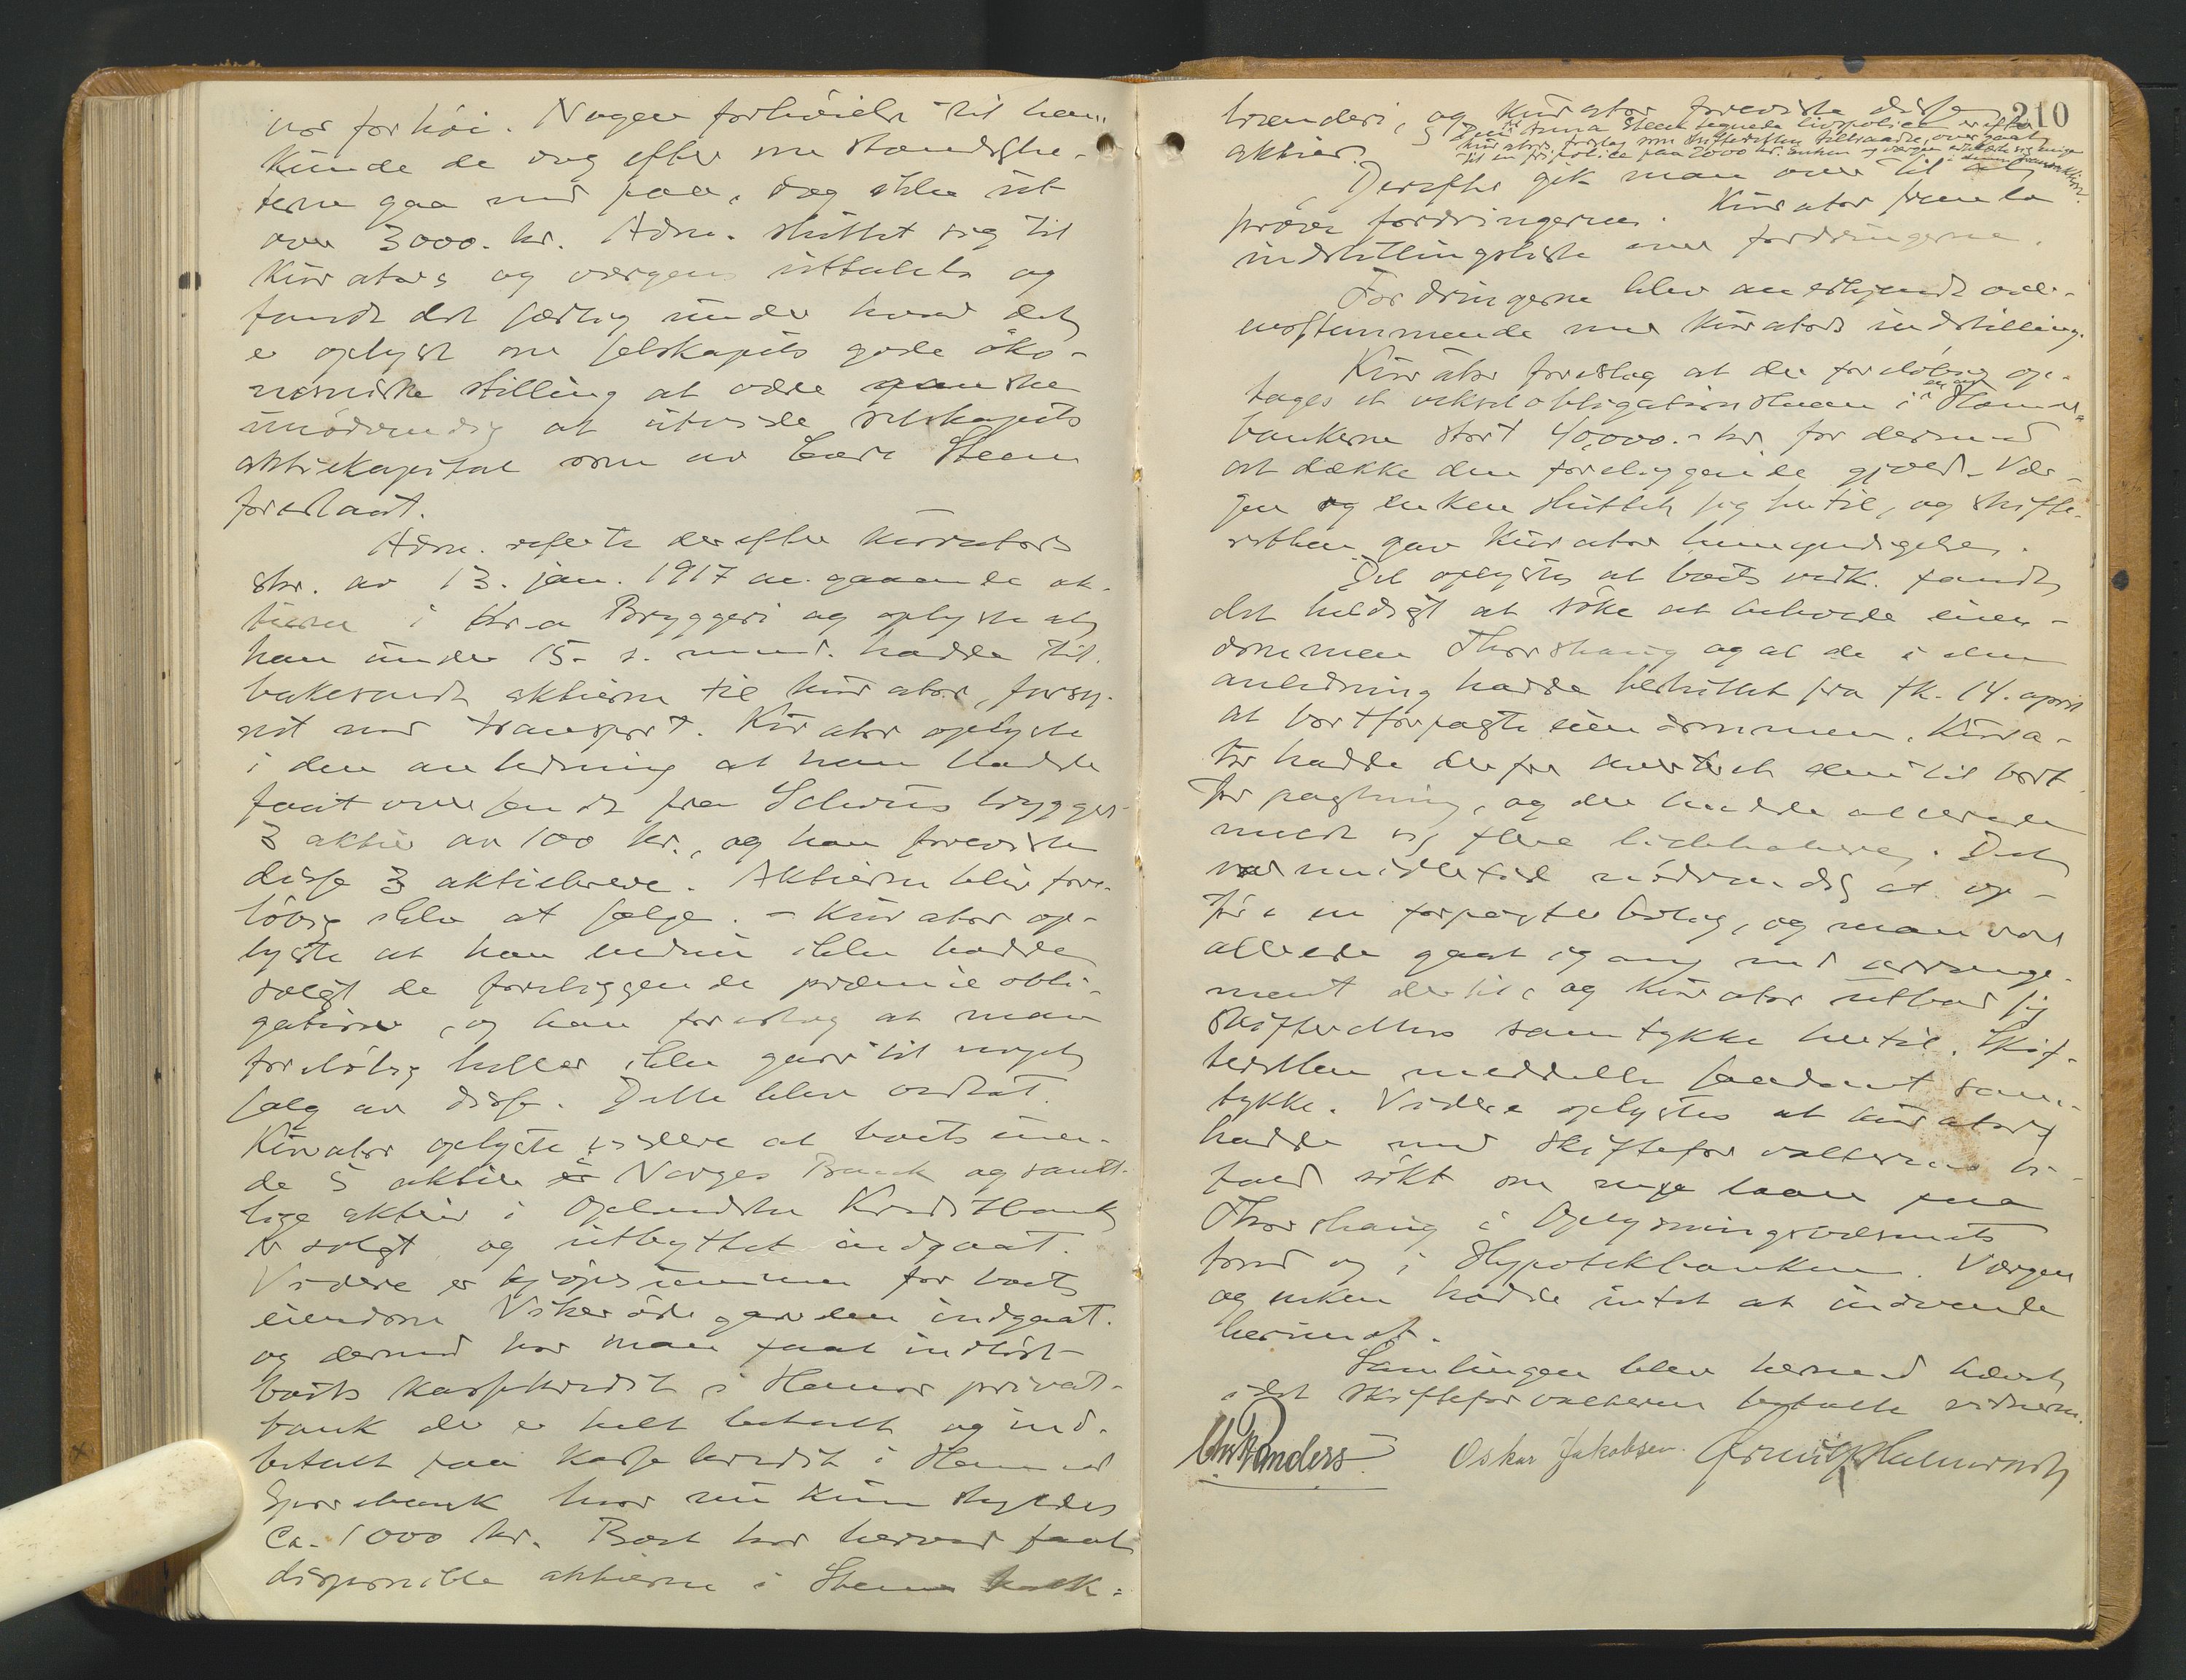 var for höi. Nogen forhöielse til ham
kunde de dog efter omstændighe-
terne gaa med paa, dog ikke ut
over 3000.- kr. Adm. sluttet sig til
kurators og værgens uttalelse og
fandt det særlig under hvad der
er oplyst om selskapets gode öko-
nomiske stilling at være ganske
unödvendig at utvide selskapets
aktiekapital som av Carl Steen
foreslaat.
Adm. referete derefter kurators
skr. av 13. jan. 1917 an. gaaende ak-
tierne i Kr.a Bryggeri og oplyste at
han under 15. s. mnd. hadde til-
bakesendt aktierne til kurator, forsy-
net med transport. Kurator oplyste
i den anledning at han hadde
faat oversendt fra Schous bryggeri
3 aktier av 100 kr., og han foreviste
disse 3 aktiebreve. Aktierne blir fore-
löbig ikke at sælge. - Kurator op-
lyste at han endnu ikke hadde
solgt de foreliggende præmieobli-
gationer, og han foreslog at man
forelöbig heller ikke gaar til noget
salg av disse. Dette blev vedtat.
Kurator oplyste videre at boets iböen-
de 5 aktier i Norges Bank og samt-
lige aktier i Oplandske Kreditbank
er solgt og utbyttet indgaat.
Videre er kjöpesummen for boets
eiendom Vikeröde gaarden indgaat.
og dermed har man faat indlöst
boets kassekredit i Hamar privat-
bank der er helt betalt og ind-
betalt paa kassekredit i Hamar
Sparebank hvor nu kun skyldes
Ca. 1000 kr. Boet har herved faat
disponible aktierne i Steens kalk-
210
brænderi, og kurator foreviste disse
aktier. Den Anna Steen tegnede livspolice er efter
kurators forslag som skifteretten tiltraadte, overgaat
til en fripolice paa 2000 kr. Enken og værgen erklærte sig enige
i denne transaktion.
Derefter gik man over til at
pröve fordringerne. Kurator fremla
indstillingsliste over fordringerne.
Fordringerne blev anerkjendt over-
ensstemmende med kurators indstilling.
Kurator foreslog at der forelöbig op-
tages et vekselobligationslaan i en av Hamar-
bankerne stort 40,000.- kr. for dermed
at dække den foreliggende gjæld. Vær-
gen og enken sluttet sig hertil, og skifte-
retten gav kurator bemyndigelse.
Det oplystes at boets vedk. fandt
det heldigt at söke at beholde eien-
dommen Thorshaug og at de i den
anledning hadde besluttet fra fk. 14. april
at bortforpagte eiendommen. Kura-
tor hadde derfor avertert den til bort-
forpagtning, og der hadde allerede
meldt sig flere liebhabere. Det
var imidlertid nödvendig at op-
före en forpagterbolig, og man var
allerede gaat igang med arrange-
ment dertil, og kurator utbad sig
skifterettens samtykke hertil. Skif-
teretten meddelte saadant sam-
tykke. Videre oplystes at kurator
hadde med skifteforvalterens bi-
fald sökt om nye laan paa
Thorshaug i Oplysningsvæsenets
fond og i Hypotekbanken. Værgen
og enken hadde intet at indvende
herimot.
Samlingen blev hermed hævet
idet skifteforvalteren betalte vidnerne.
Oskar Jakobsen.